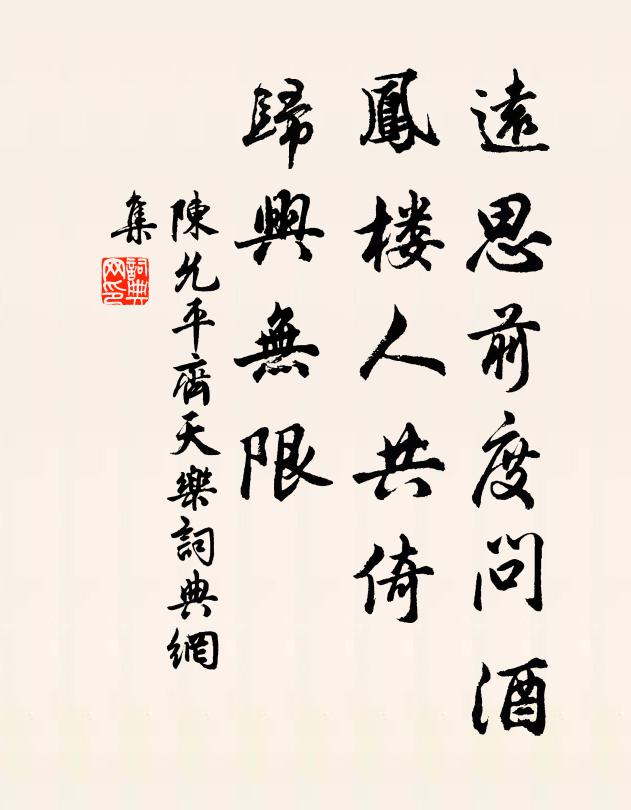 遠思前度問酒
鳳楼人共倚
歸興無限
陳允平齊天樂詞典網
集
詞典
网印